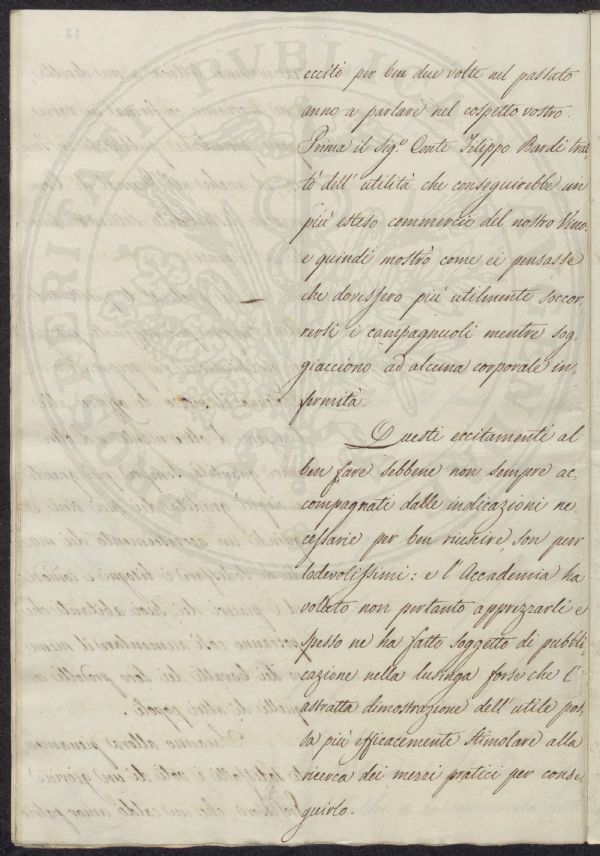 eccitò per ben due volte nel passato
anno a parlare nel cospetto vostro.
Prima il Sig.º Conte Filippo Bardi trat-
tò dell'utilità che conseguirebbe un
più esteso commercio del nostro Vino:
e quindi mostrò come ei pensasse
che dovessero più utilmente soccor-
rersi i campagnuoli mentre sog-
giacciono ad alcuna corporale in-
fermità.
Questi eccitamenti al
ben fare sebbene non sempre ac-
compagnati dalle indicazioni ne-
cessarie per ben riuscire, son pur
lodevolissimi: e l'Accademia ha
voluto non pertanto apprezzarli e
spesso ne ha fatto soggetto di pubbli-
cazione nella lusinga forse che l'
astratta dimostrazione dell'utile pos-
sa più efficacemente stimolare alla
ricerca dei mezzi pratici per conse-
guirlo.